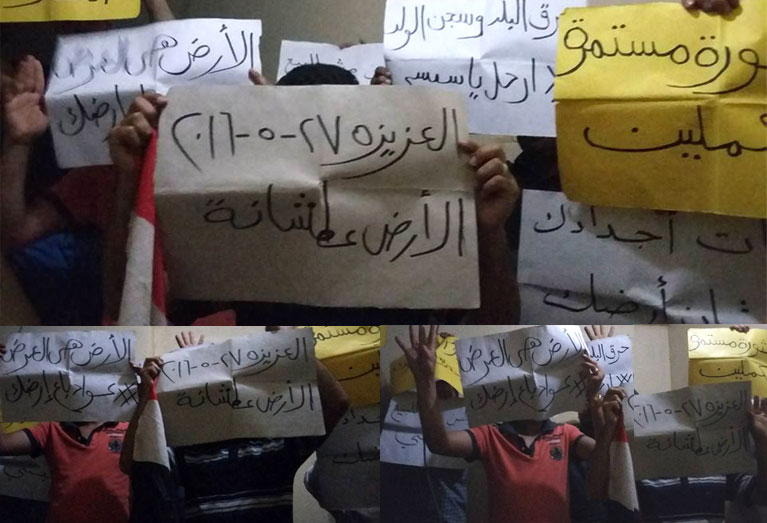 الأرض هى العرض
ارضك
العزيزه ٢٧-٥-٢٠١٦
الأرض عطشانة
حرق البلد وسجن الولد
ارحل ياسيسى
ثورة مستمرة
مكملين
ات أجدادك
أرضك
الأرض هى العرض
#عواد باع إرضك
العزيزه ٢٧-٥-٢٠١٦
الأرض عطشانة
ثورة مستمرة
الأرض هى العرض
#عواد باع إرضك
حرق البلد
العزيزه ٢٧-٥-٢٠١٦
الأرض عطشانة
ثورة مستمرة
مكملين